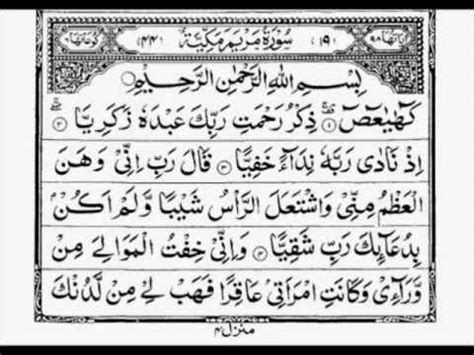 اٰيَاتُهَا ٩٨ (١٩) سُوْرَةُ مَرْيَمَ مَكِّيَّةٌ (٤٤) رُكُوْعَاتُهَا ٦
بِسْمِ اللهِ الرَّحْمٰنِ الرَّحِيْمِ
كٓهٰيٰعٓصٓ ۚ ١ ذِكْرُ رَحْمَتِ رَبِّكَ عَبْدَهٗ زَكَرِيَّا ۚ ٢
اِذْ نَادٰى رَبَّهٗ نِدَآءً خَفِيًّا ٣ قَالَ رَبِّ اِنِّىْ وَهَنَ
الْعَظْمُ مِنِّىْ وَاشْتَعَلَ الرَّاْسُ شَيْبًا وَّلَمْ اَكُنْۢ
بِدُعَآئِكَ رَبِّ شَقِيًّا ٤ وَاِنِّىْ خِفْتُ الْمَوَالِىَ مِنْ
وَّرَآءِىْ وَكَانَتِ امْرَاَتِىْ عَاقِرًا فَهَبْ لِىْ مِنْ لَّدُنْكَ
منزل ٤